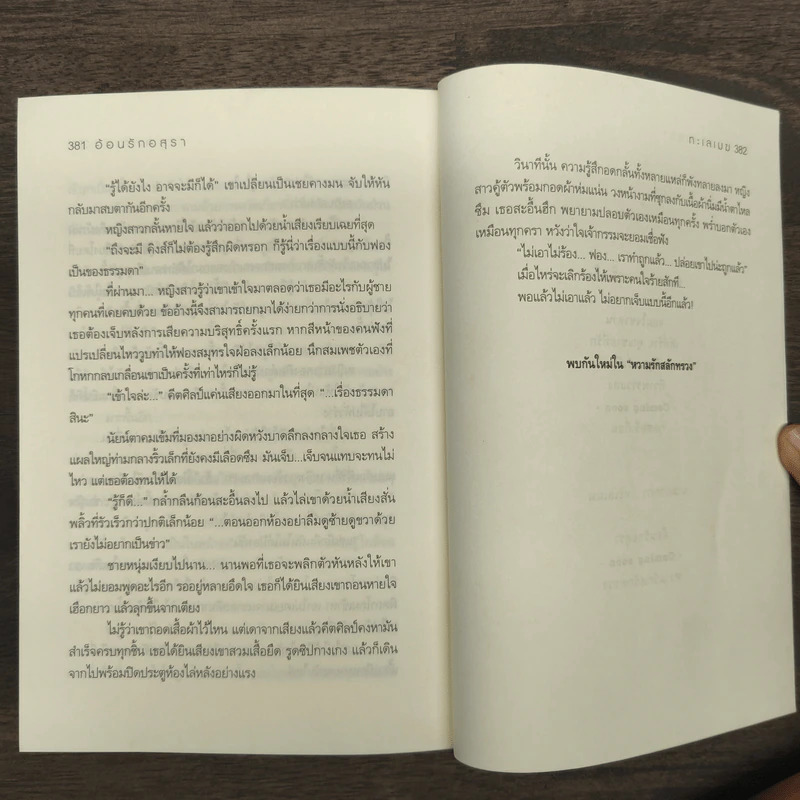 381 อ้อนรักอสุรา
"รู้ได้ยังไง อาจจะมีก็ได้" เขาเปลี่ยนเป็นเชยคางมน จับให้หัน
กลับมาสบตากันอีกครั้ง
หญิงสาวกลั้นหายใจ แล้วว่าออกไปด้วยน้ำเสียงเรียบเฉยที่สุด
"ถึงจะมี คิงส์ก็ไม่ต้องรู้สึกผิดหรอก ก็รู้นี่ว่าเรื่องแบบนี้กับฟอง
เป็นของธรรมดา"
ที่ผ่านมา... หญิงสาวรู้ว่าเขาเข้าใจมาตลอดว่าเธอมีอะไรกับผู้ชาย
ทุกคนที่เคยคบด้วย ข้ออ้างนี้จึงสามารถยกมาได้ง่ายกว่าการนั่งอธิบายว่า
เธอต้องเจ็บหลังการเสียความบริสุทธิ์ครั้งแรก หากสีหน้าของคนฟังที่
แปรเปลี่ยนไหววูบทำให้ฟองสมุทรใจฝ่อลงเล็กน้อย นึกสมเพชตัวเองที่
โกหกกลบเกลื่อนเขาเป็นครั้งที่เท่าไหร่ก็ไม่รู้
"เข้าใจล่ะ..." คีตศิลป์แค่นเสียงออกมาในที่สุด "...เรื่องธรรมดา
สินะ"
นัยน์ตาคมเข้มที่มองมาอย่างผิดหวังบาดลึกลงกลางใจเธอ สร้าง
แผลใหญ่ท่ามกลางริ้วเล็กที่ยังคงมีเลือดซึม มันเจ็บ...เจ็บจนแทบจะทนไม่
ไหว แต่เธอต้องทนให้ได้
"รู้ก็ดี..." กล้ำกลืนก้อนสะอื้นลงไป แล้วไล่เขาด้วยน้ำเสียงสั่น
พลิ้วที่รัวเร็วกว่าปกติเล็กน้อย "...ตอนออกห้องอย่าลืมดูซ้ายดูขวาด้วย
เรายังไม่อยากเป็นข่าว"
ชายหนุ่มเงียบไปนาน... นานพอที่เธอจะพลิกตัวหันหลังให้เขา
แล้วไม่ยอมพูดอะไรอีก รออยู่หลายอึดใจ เธอก็ได้ยินเสียงเขาถอนหายใจ
เฮือกยาว แล้วลุกขึ้นจากเตียง
ไม่รู้ว่าเขาถอดเสื้อผ้าไว้ไหน แต่เดาจากเสียงแล้วคีตศิลป์คงหามัน
สำเร็จครบทุกชิ้น เธอได้ยินเสียงเขาสวมเสื้อยืด รูดซิปกางเกง แล้วก็เดิน
จากไปพร้อมปิดประตูห้องไล่หลังอย่างแรง
ทะเลเมฆ 382
วินาทีนั้น ความรู้สึกอดกลั้นทั้งหลายแหล่ก็พังทลายลงมา หญิง
สาวคู้ตัวพร้อมกอดผ้าห่มแน่น วงหน้างามที่ซุกลงกับเนื้อผ้านิ่มมีน้ำตาไหล
ซึม เธอสะอื้นฮึก พยายามปลอบตัวเองเหมือนทุกครั้ง พร่ำบอกตัวเอง
เหมือนทุกครา หวังว่าใจเจ้ากรรมจะยอมเชื่อฟัง
"ไม่เอาไม่ร้อง... ฟอง... เราทำถูกแล้ว... ปล่อยเขาไปน่ะถูกแล้ว"
เมื่อไหร่จะเลิกร้องไห้เพราะคนใจร้ายสักที...
พอแล้วไม่เอาแล้ว ไม่อยากเจ็บแบบนี้อีกแล้ว!
พบกันใหม่ใน "หวามรักสลักทรวง"